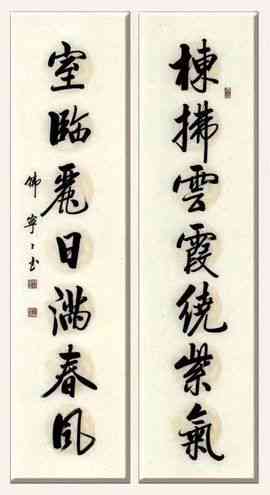 棟拂雲霞繞紫氣
室臨麗日滿春風